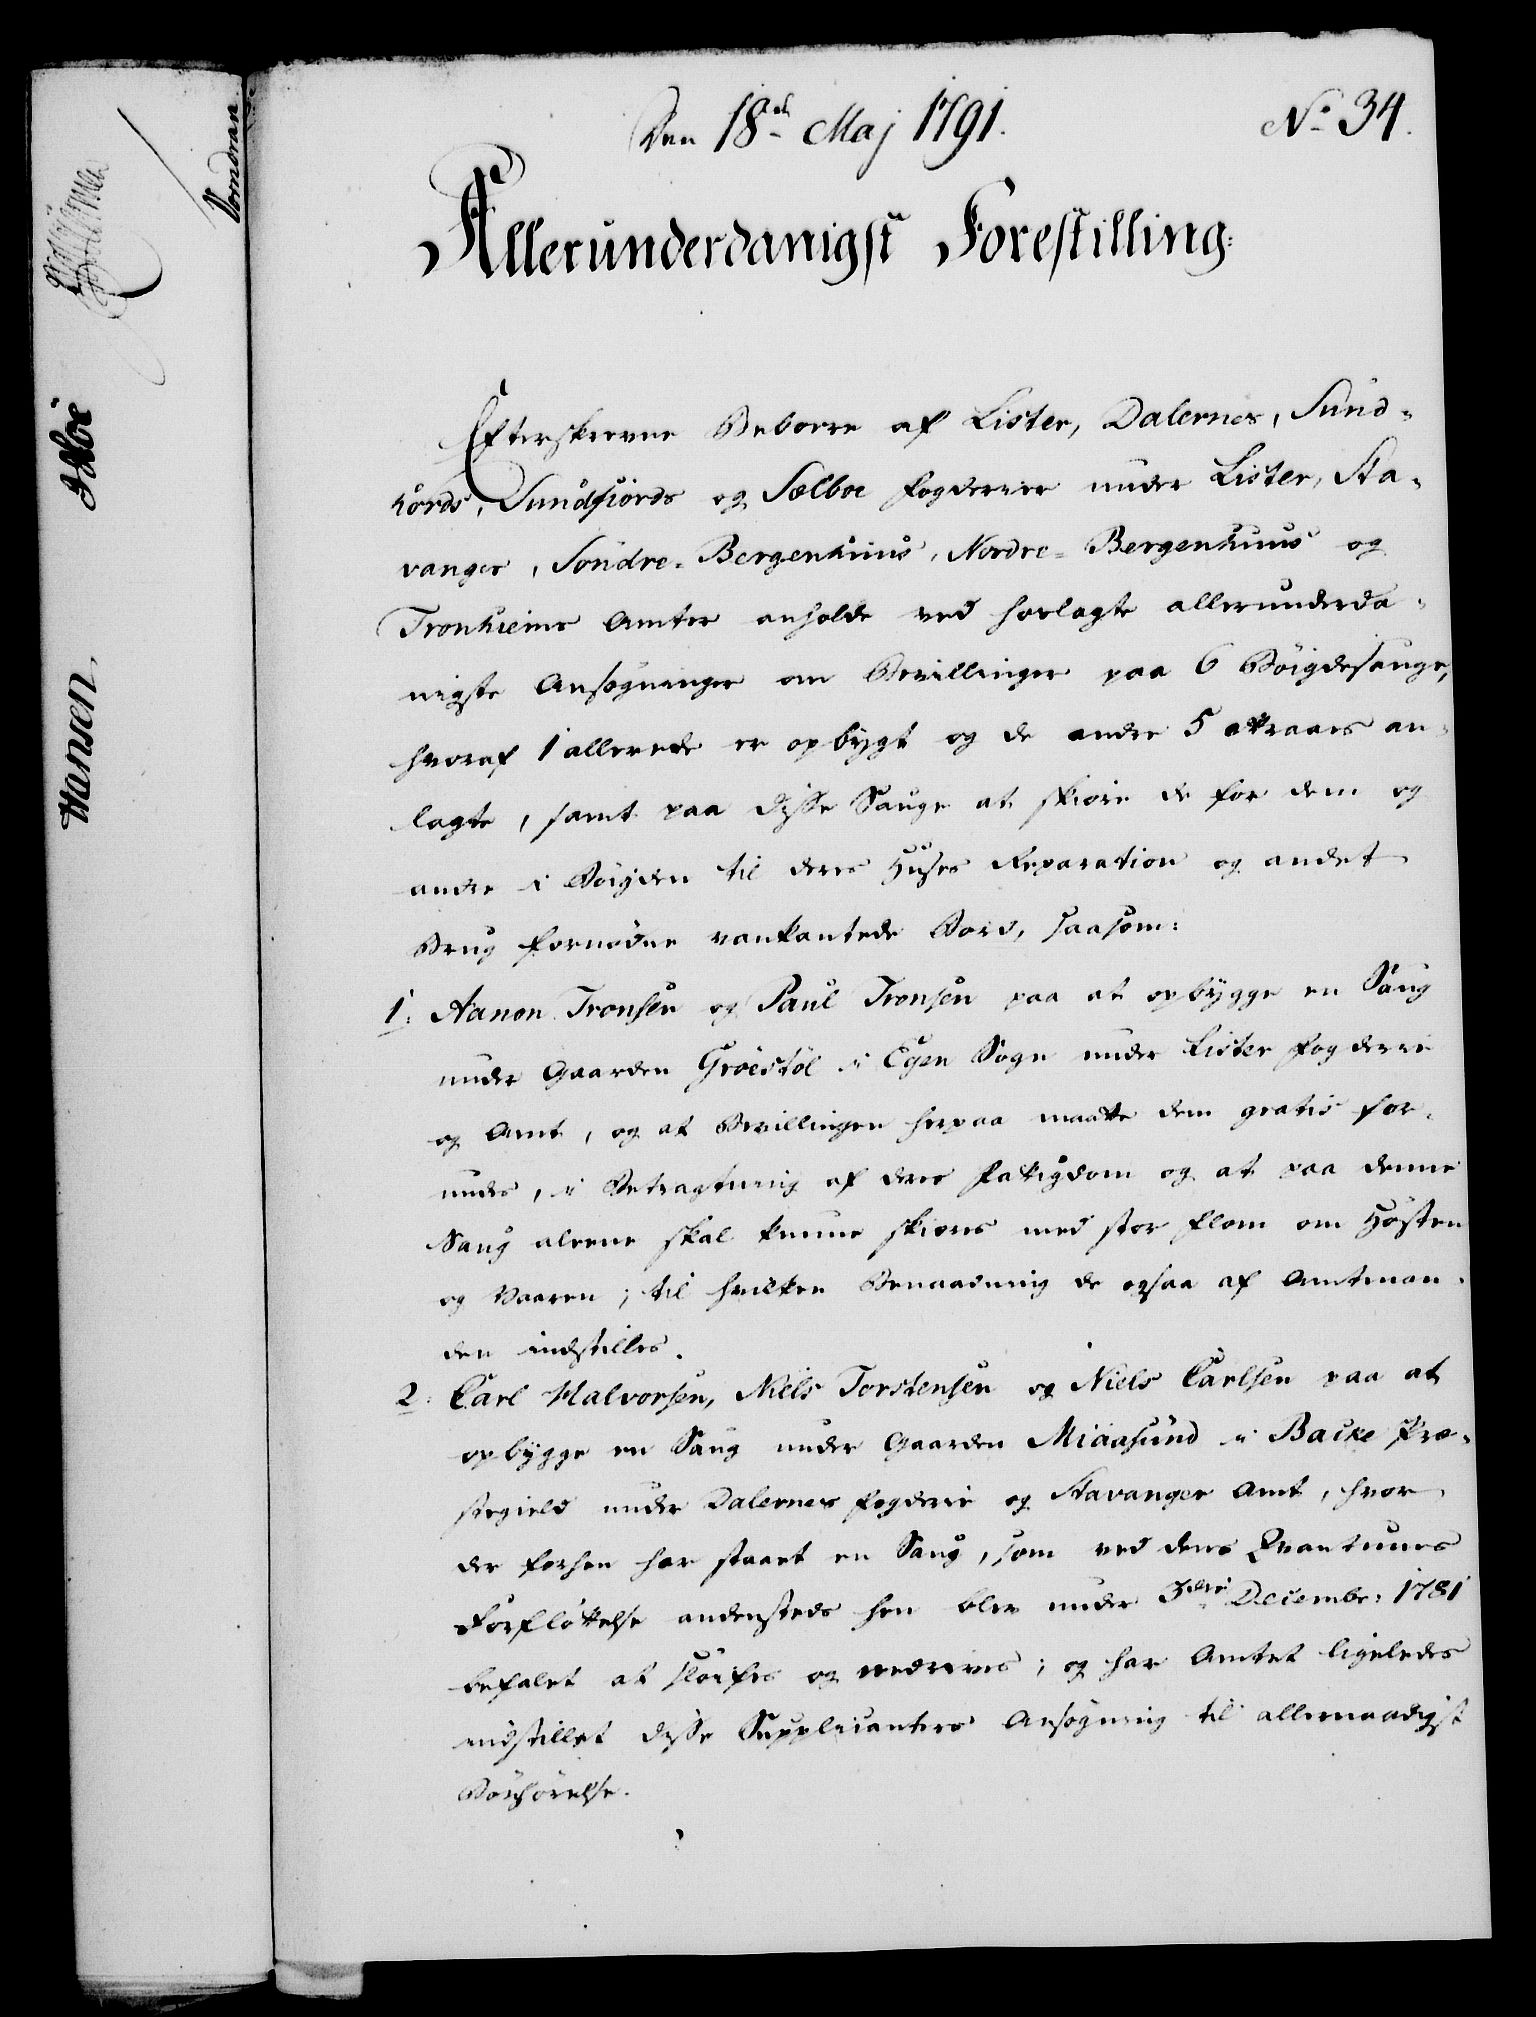 Den 18de Maj 1791.
No 34.
Allerunderdanigst Forestilling:
Efterskrevne Beboere af Lister, Dalernes, Sund-
hords, Sundfiords og Selboe Fogderier under Lister, Sta-
vanger, Söndre-Bergenhuus, Nordre-Bergenhuus og
Tronhiems Amter anholde ved hoslagte allerunderda-
nigste Ansøgninger om Bevillinger paa 6 Böigdesauge,
hvoraf 1 allerede er opbygt og de andre 5 attraaes an-
lagte, samt paa disse Sauge at skiære de for dem og
andre i Böigden til deres Huses Reparation og andet
Brug fornødne vankantede Bord, saasom:
1. Aanon Tronsen og Paul Tronsen paa at opbygge en Saug
under Gaarden Gröestöl i Egen Sogn under Lister Fogderie
og Amt, og at Bevillingen herpaa maatte dem gratis for-
undes, i Betragtning af deres Fattigdom og at paa denne
Saug aleene skal kunne skiæres med stor Flom om Høsten
og Vaaren; til hvilken Benaadning de ogsaa af Amtman-
den indstilles.
2. Carl Halvorsen, Niels Torstensen og Niels Carlsen paa at
opbygge en Saug under Gaarden Miaasund i Backe Præ-
stegield under Dalernes Fogderie og Stavanger Amt, hvor
der forhen har staaet en Saug, som ved dens Qvantums
Forfløttelse andensteds hen blev under 3die Decembr: 1781
befalet at sløifes og nedrives; og har Amtet ligeledes
indstillet disse Supplicanters Ansøgning til allernaadigst
Bönhørelse.
Hansen.
Hoe
Vormdran